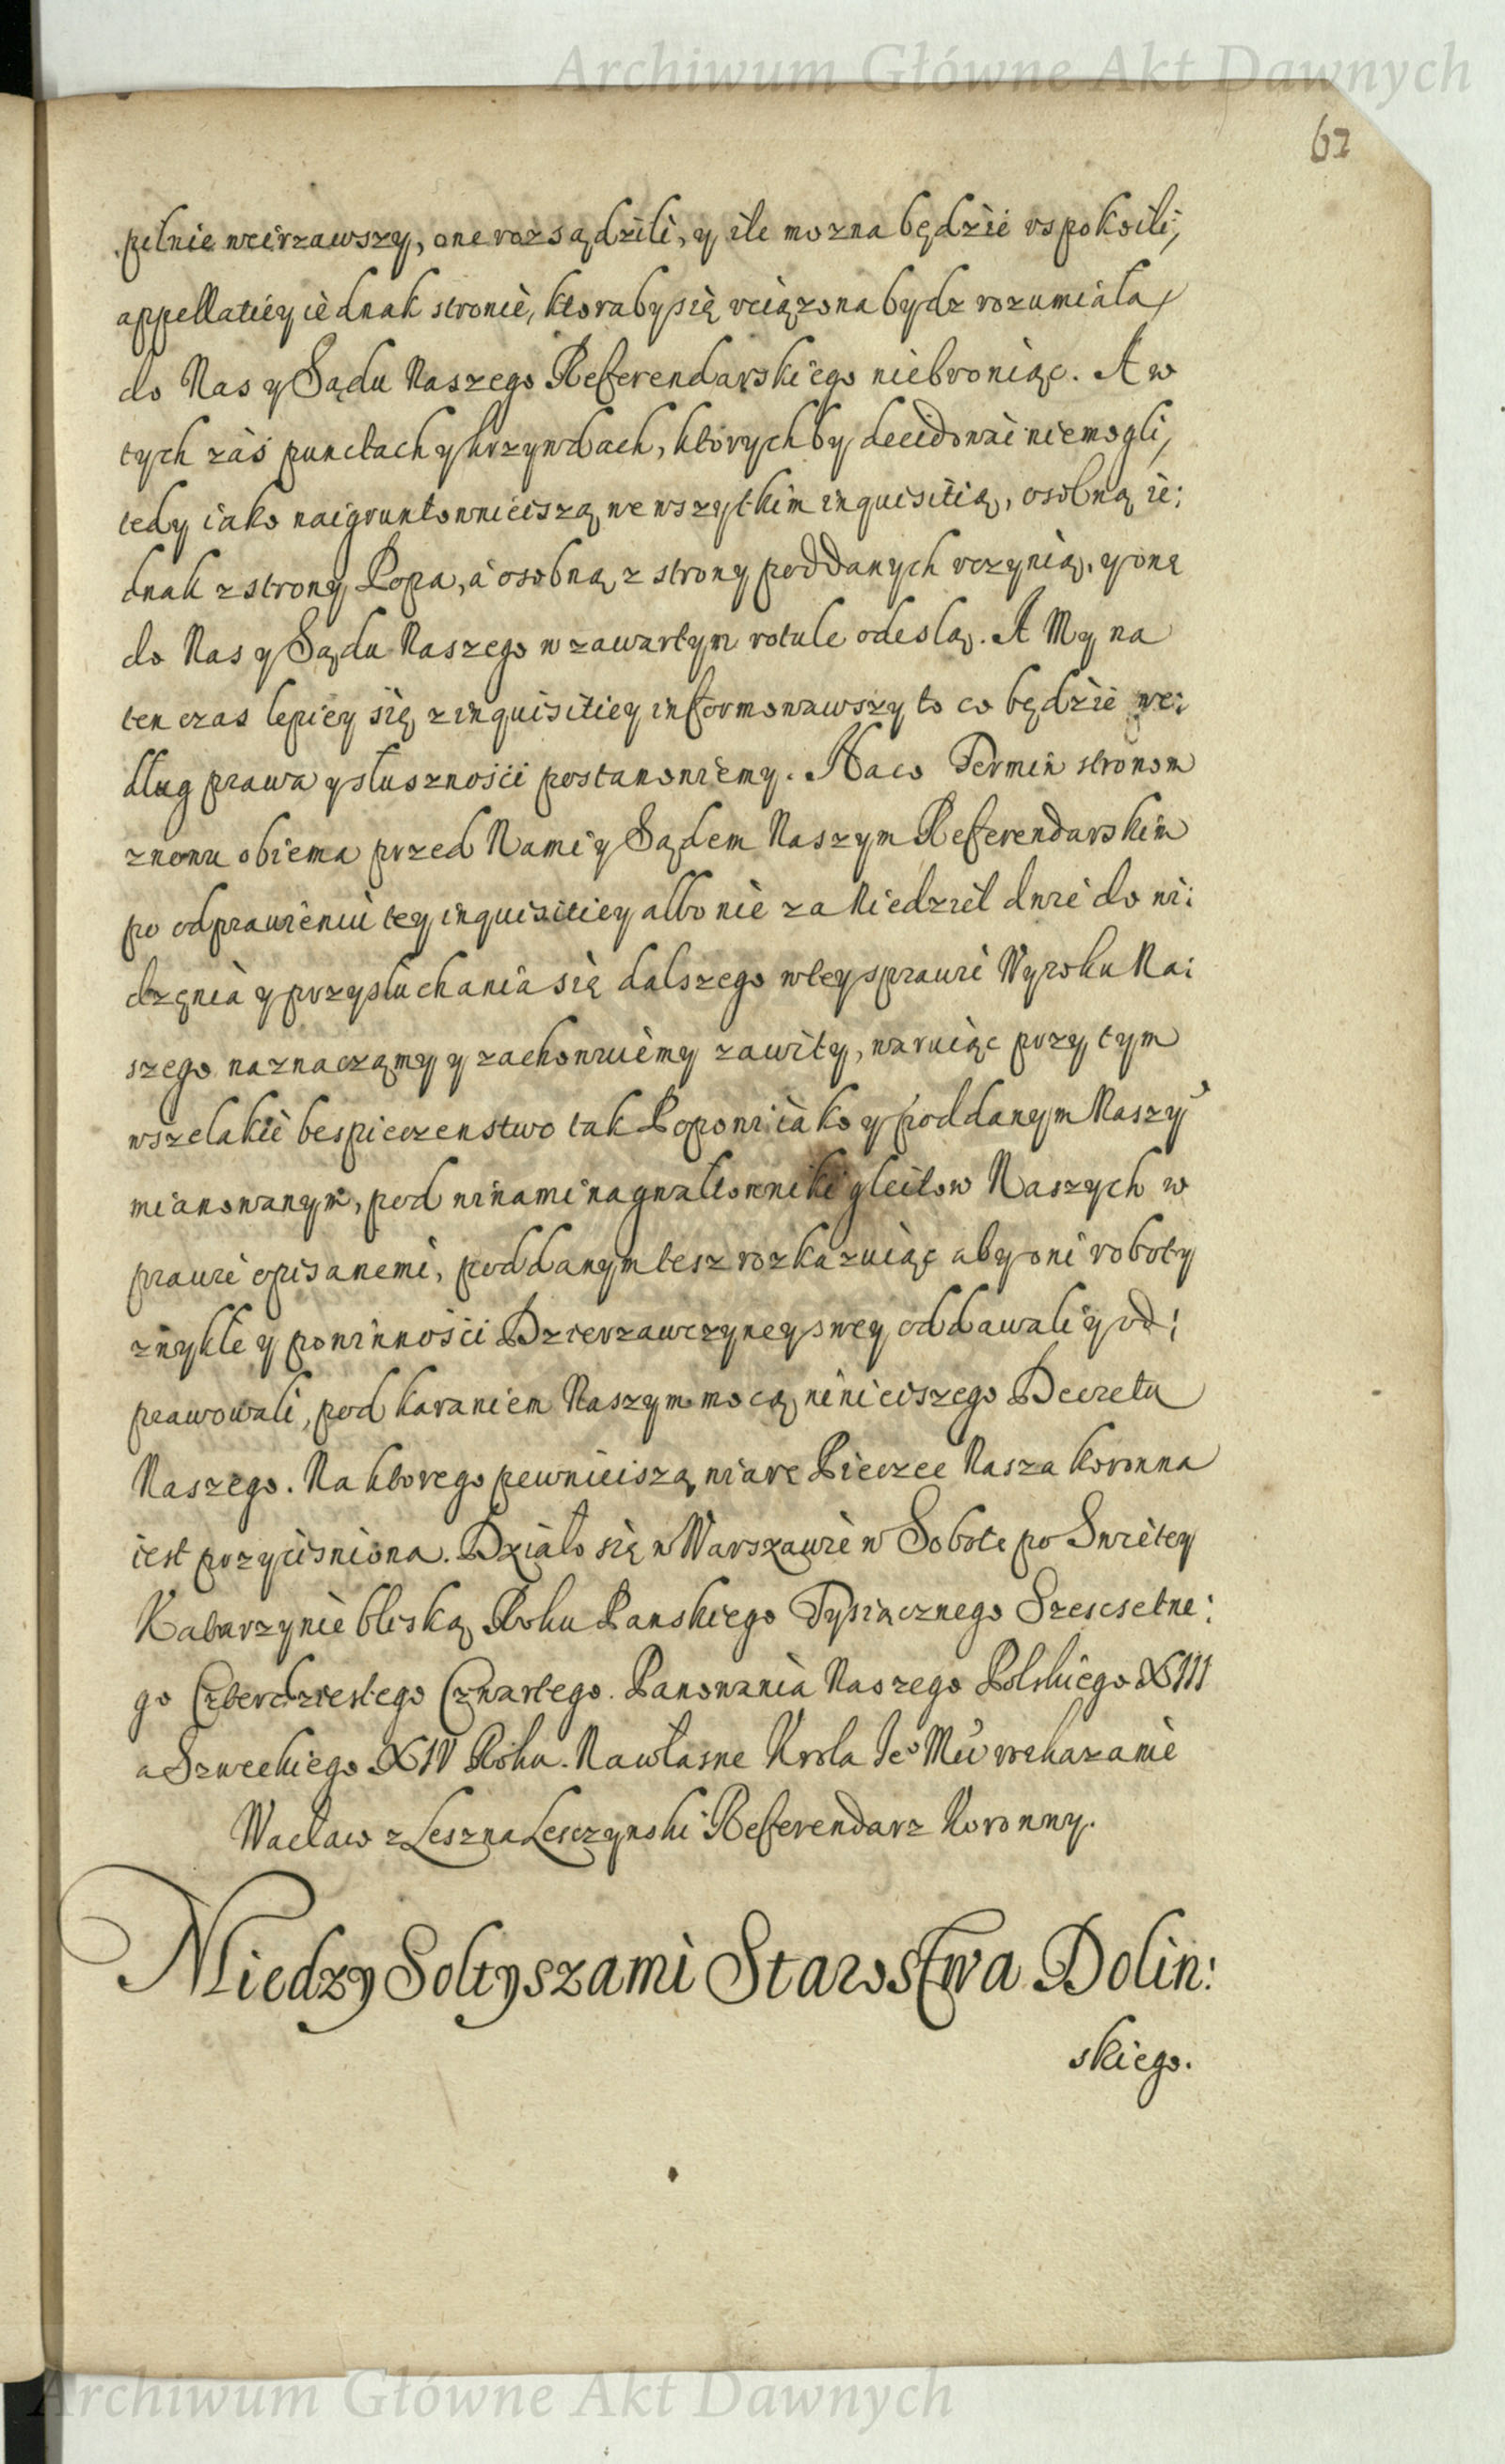 Archiwum Główne Akt Dawnych
62
pilnie weirzawszy, one rozsądzili, y ile mozna będzie uspokoili,
appellatiey iednak stronie, ktoraby się uciązona bydz rozumiała,
do Nas y Sądu Naszego Referendarskiego niebroniąc. A w
tych zaś punctach y krzywdach, ktorychby decidować niemogli,
tedy iako naigruntownieiszą we wszytkim inquisitią, osobną ie:
dnak z strony Popa, a osobną z strony poddanych uczynią, y onę
do Nas y Sądu Naszego w zawartym rotule odeslą. A My na
ten czas lepiey się z inquisitiey informowawszy to co będzie we:
dług prawa y słuszności postanowiemy. Na co Termin stronom
znowu obiema przed Nami y Sądem Naszym Referendarskim
po odprawieniu tey inquisitiey albo nie za Niedziel dwie do wi:
dzęnia y przysłuchania się dalszego w tey sprawie Wyroku Na:
szego naznaczamy y zachowuiemy zawity, waruiąc przy tym
wszelakie bespieczenstwo tak Popowi iako y poddanym Naszy
mianowanym, pod winami na gwałtowniki gleitow Naszych w
prawie opisanemi, poddanym tesz rozkazuiąc aby oni roboty
zwykłe y powinności Dzierzawczyney swey oddawali y od:
prawowali, pod karaniem Naszym mocą ninieiszego Decretu
Naszego. Na ktorego pewnieiszą wiarę Pieczęc Nasza koronna
iest przycisniona. Działo się w Warszawie w Sobotę po Swiętey
Katarzynie bliską Roku Panskiego Tysiącznego Szescsetne:
go Czterdziestego Czwartego. Panowania Naszego Polskiego XIII
a Szweckiego XIV Roku. Na własne Krola Je⁰ Mci rozkazanie
Wacław z Leszna Lesczynski Referendarz Koronny.
Miedzy Soltyszami Starostwa Dolin:
skiego.
Archiwum Główne Akt Dawnych